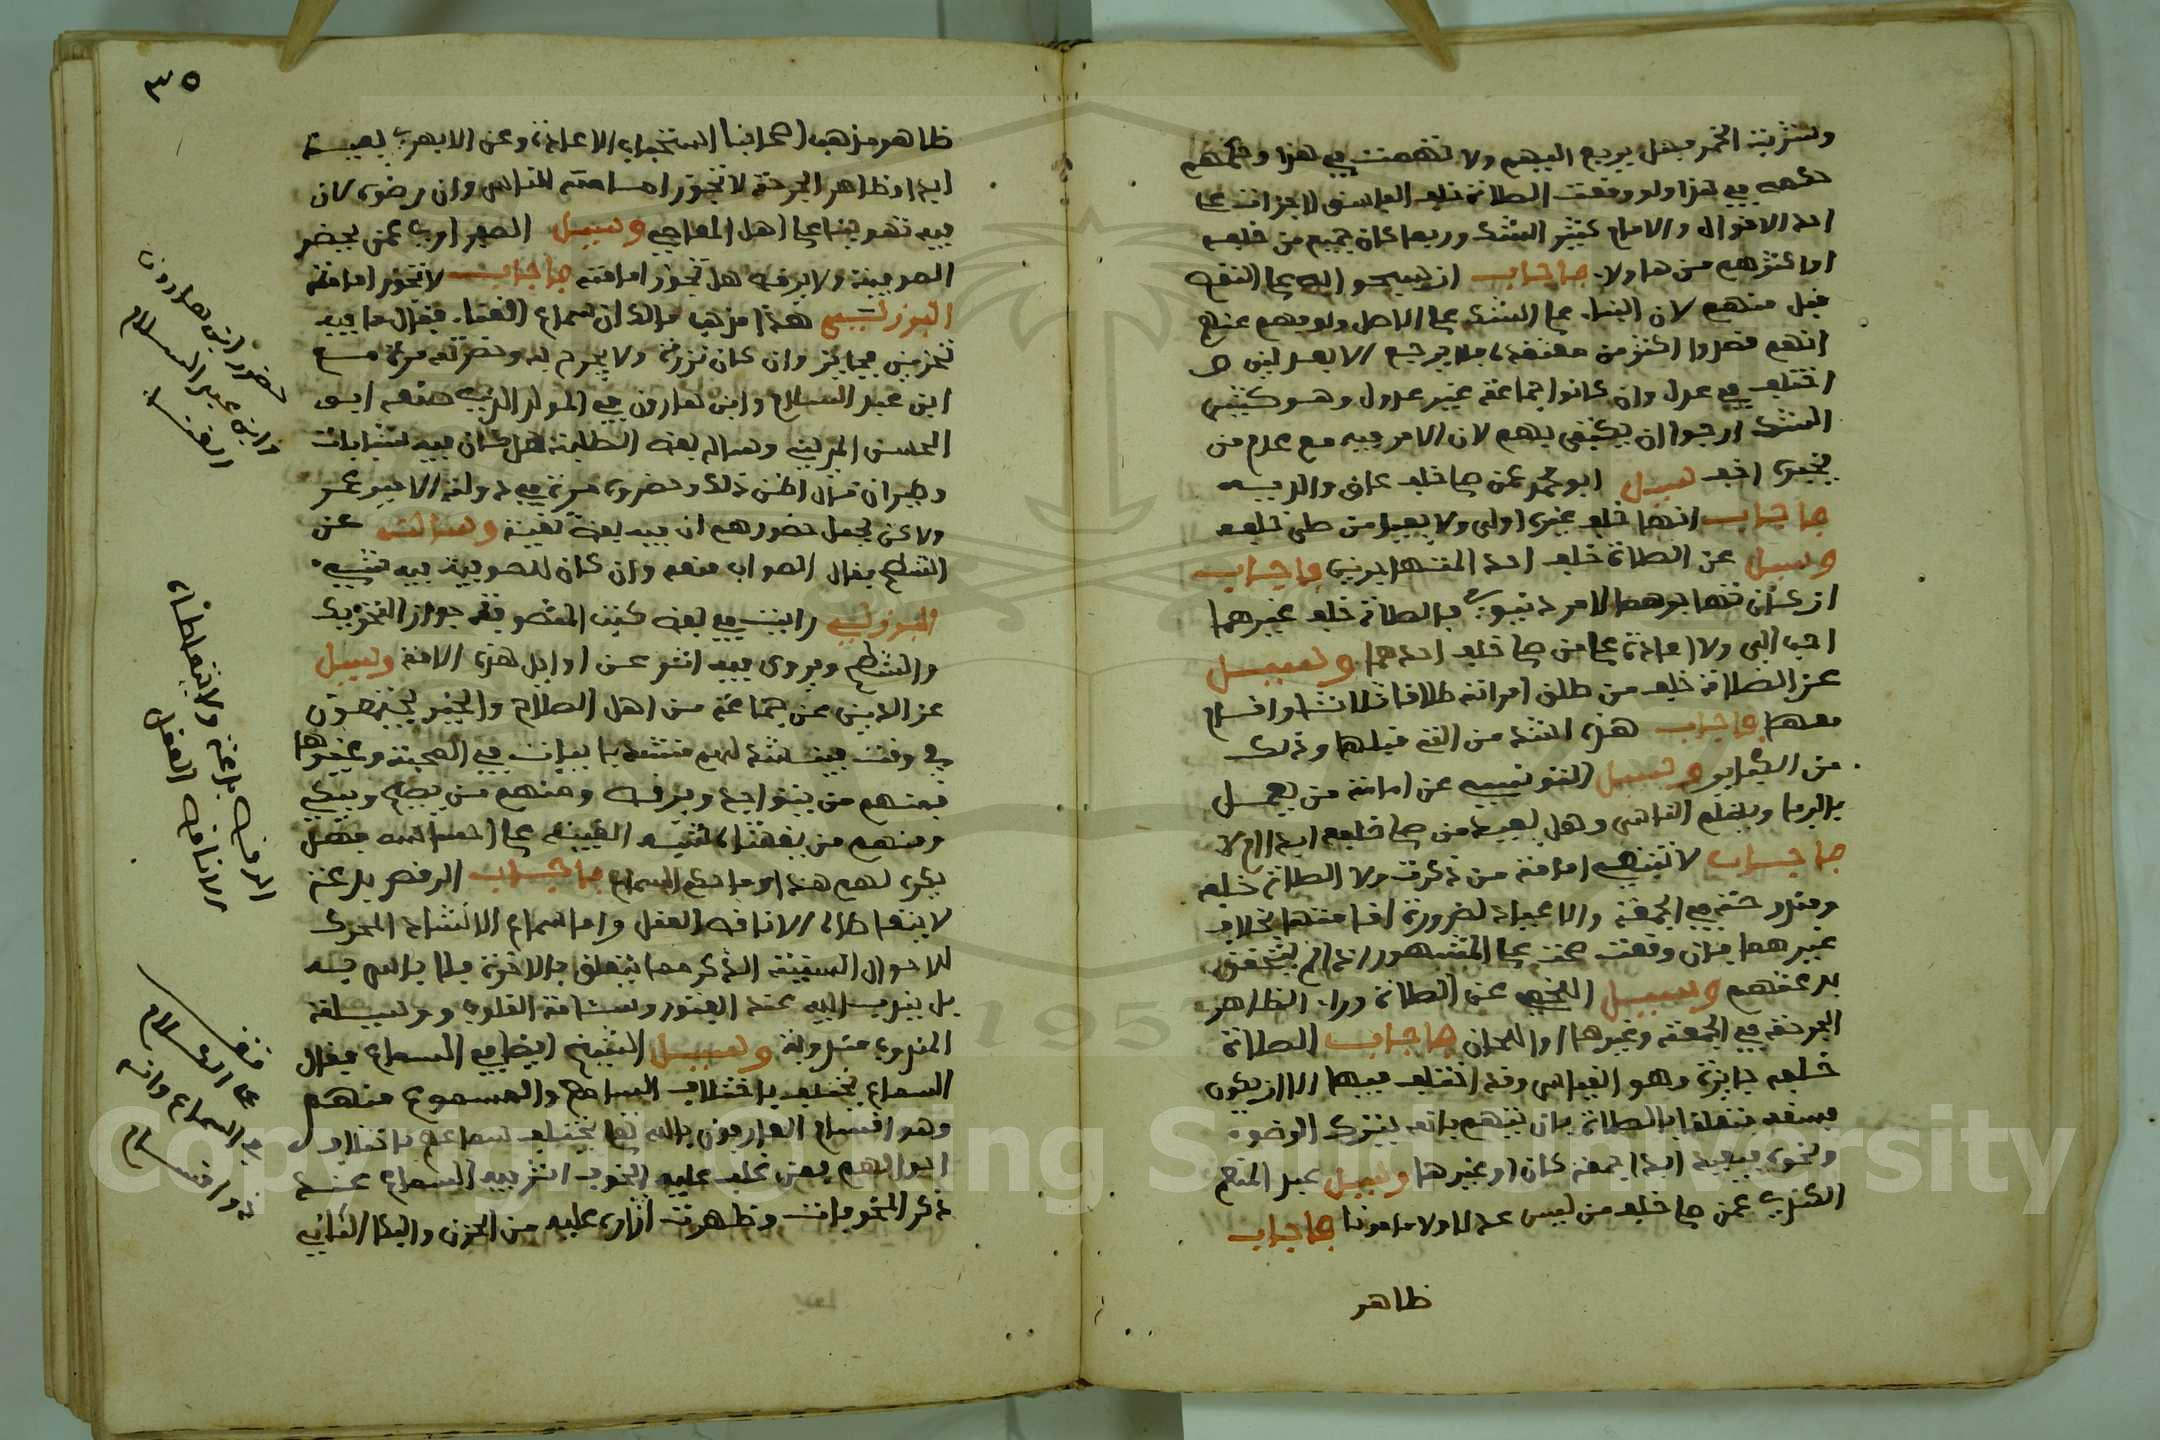 وشربة الخمر فهل يربع اليهم ولا تتهمت في هذا وحكمهم
حكمه في هذا ولو وقعت الصلاة خلف الفاسق لاجزات على
احد الاقوال والامام كثير الشك وربما كان جميع من خلفه
او اكثرهم من هاولا فاجاب ان سبحوا اليه على التفه
قبل منهم لان البناء على الشك على الاصل ولو بهم عنهم
انهم قصروا اكثر من معتقده فلا يرجع الا بعدلين
اختلف في عدل وان كانوا جماعة غير عدول وهو كثير
الشك ارجوا ان يكتفى بهم لان الامر فيه مع عدم من
يخبره اخف سيل ابو محمد عمن صلى خلف عاق والديه
فاجاب انها خلف غيره اولى ولا يعيد من صلى خلفه
وسيل عن الصلاة خلف احد المتهاجرين فاجاب
ان كان تهاجرهما لامر دنيوي فالصلاة خلف غيرهما
احب الي ولا اعادة على من صلى خلف احدهما وسيل
عن الصلاة خلف من طلق امراته طلاقا ثلاثا واقام
معها فاجاب هذه اشد من التي قبلها وذلك
من الكباير وسيل التونسي عن امامة من يعمل
بالربا ويظلم الناس وهل يعيد من صلى خلفه ابدا ام لا
فاجاب لا تنبغي امامة من ذكرت ولا الصلاة خلفه
ومثله حتى في الجمعة والاعياد لضرورة اقامتها بخلاف
غيرهما فان وقعت صحت على المشهور اذا لم تتحقق
بدعتهم وسيل اللخمي عن الصلاة وراء الظاهر
الجرحة في الجمعة وغيرها او اللحان فاجاب الصلاة
خلفه جايزة وهو القياس وقد اختلف فيها الا ان يكون
فسقه متعلقا بالصلاة بان يتهم بانه يترك الوضوء
ونحوه فيعيد ابدا جمعة كان او غيرها وسيل عبد المنعم
الكندي عمن صلى خلف من ليس عدلا ولا مامونا فاجاب
ظاهر
٣٥
ظاهر مذهب اصحابنا استحباب الاعادة وعن الابهري يعيد
ابدا وظاهر الجرحة لا تجوز امامته للناس وان رضوه لان
فيه تهوينا على اهل المعاصي وسيل الصدراوي عمن يحضر
الصوفية ولا يرقص هل تجوز امامته فاجاب لا تجوز امامته
البرزلي هذا مذهب مالك ان سماع الغنا فيقال ما فيه
تحزين فجايز وان كان نزرة ولا يحرم له وحضرته مرة مع
ابن عبد السلام وابن هارون في المولد الذي صنعه ابو
الحسن المريني وساله بعض الطلبة هل كان فيه شبابات
وطيران فقال اظن ذلك وحضروه مرة في دولة الامير عمر
ولاكن يحمل حضورهم ان فيه بعض تقية وسالت عن
الشطح فقال الصواب منعه وان كان للصوفية فيه شيء
البرزلي رايت في بعض كتب المتصوفة جواز التحريك
والشطح ويروى فيه اثر عن اوايل هذه الامة وسيل
عز الدين عن جماعة من اهل الصلاح والخير يجتمعون
في وقت فينشد لهم منشد ابيات في المحبة وغيرها
فمنهم من يتواجد ويرقص ومنهم من يصيح ويبكي
ومنهم من يغشاه شبه الغيبة على احساسه فهل
يكره لهم هذا وما حكم السماع فاجاب الرقص بدعة
لا يتعاطاه الا ناقص العقل واما سماع الانشاد المحرك
للاحوال السنية الذكر مما يتعلق بالاخرة فلا باس به
بل يندب اليه عند الفتور وسئامة القلوب ووسيلة
المندوب مندوبة وسيل الشيخ ايضا في السماع فقال
السماع يختلف باختلاف السامع والمسموع منهم
وهو اقسام العارفون بالله تعالى يختلف سماعهم باختلاف
احوالهم فمن غلب عليه الخوف اثر فيه السماع عند
ذكر المخوفات وظهرت اثاره عليه من الحزن والبكا الثاني
حضور ابن هارون
وابن عبد السلام
الغنا
الرقص بدعة ولا يتعاطاه
الا ناقص العقل
على السماع وانه
ذو اقسام